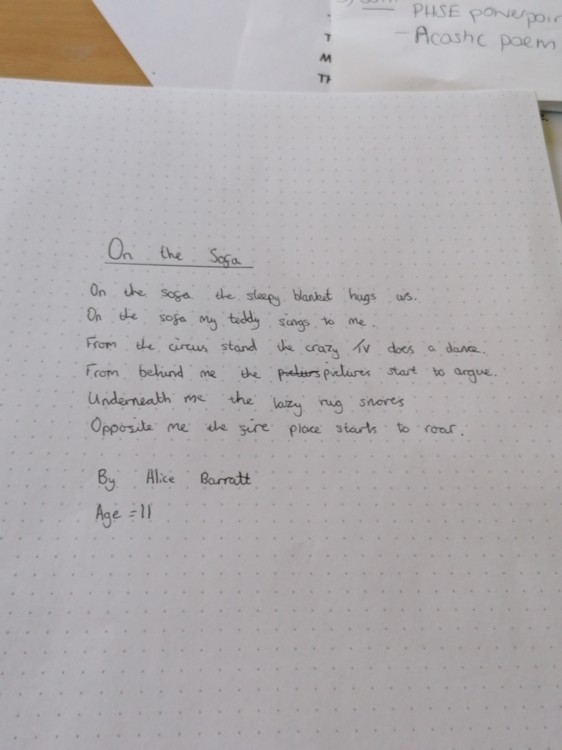 PHSE powerpoin
- Acostic poem
T
M
TH
On the Sofa
On the sofa the sleepy blanket hugs us.
On the sofa my teddy sings to me.
From the circus stand the crazy TV does a dance.
From behind me the pictures start to argue.
Underneath me the lazy rug snores
Opposite me the fire place starts to roar.
By Alice Barratt
Age = 11